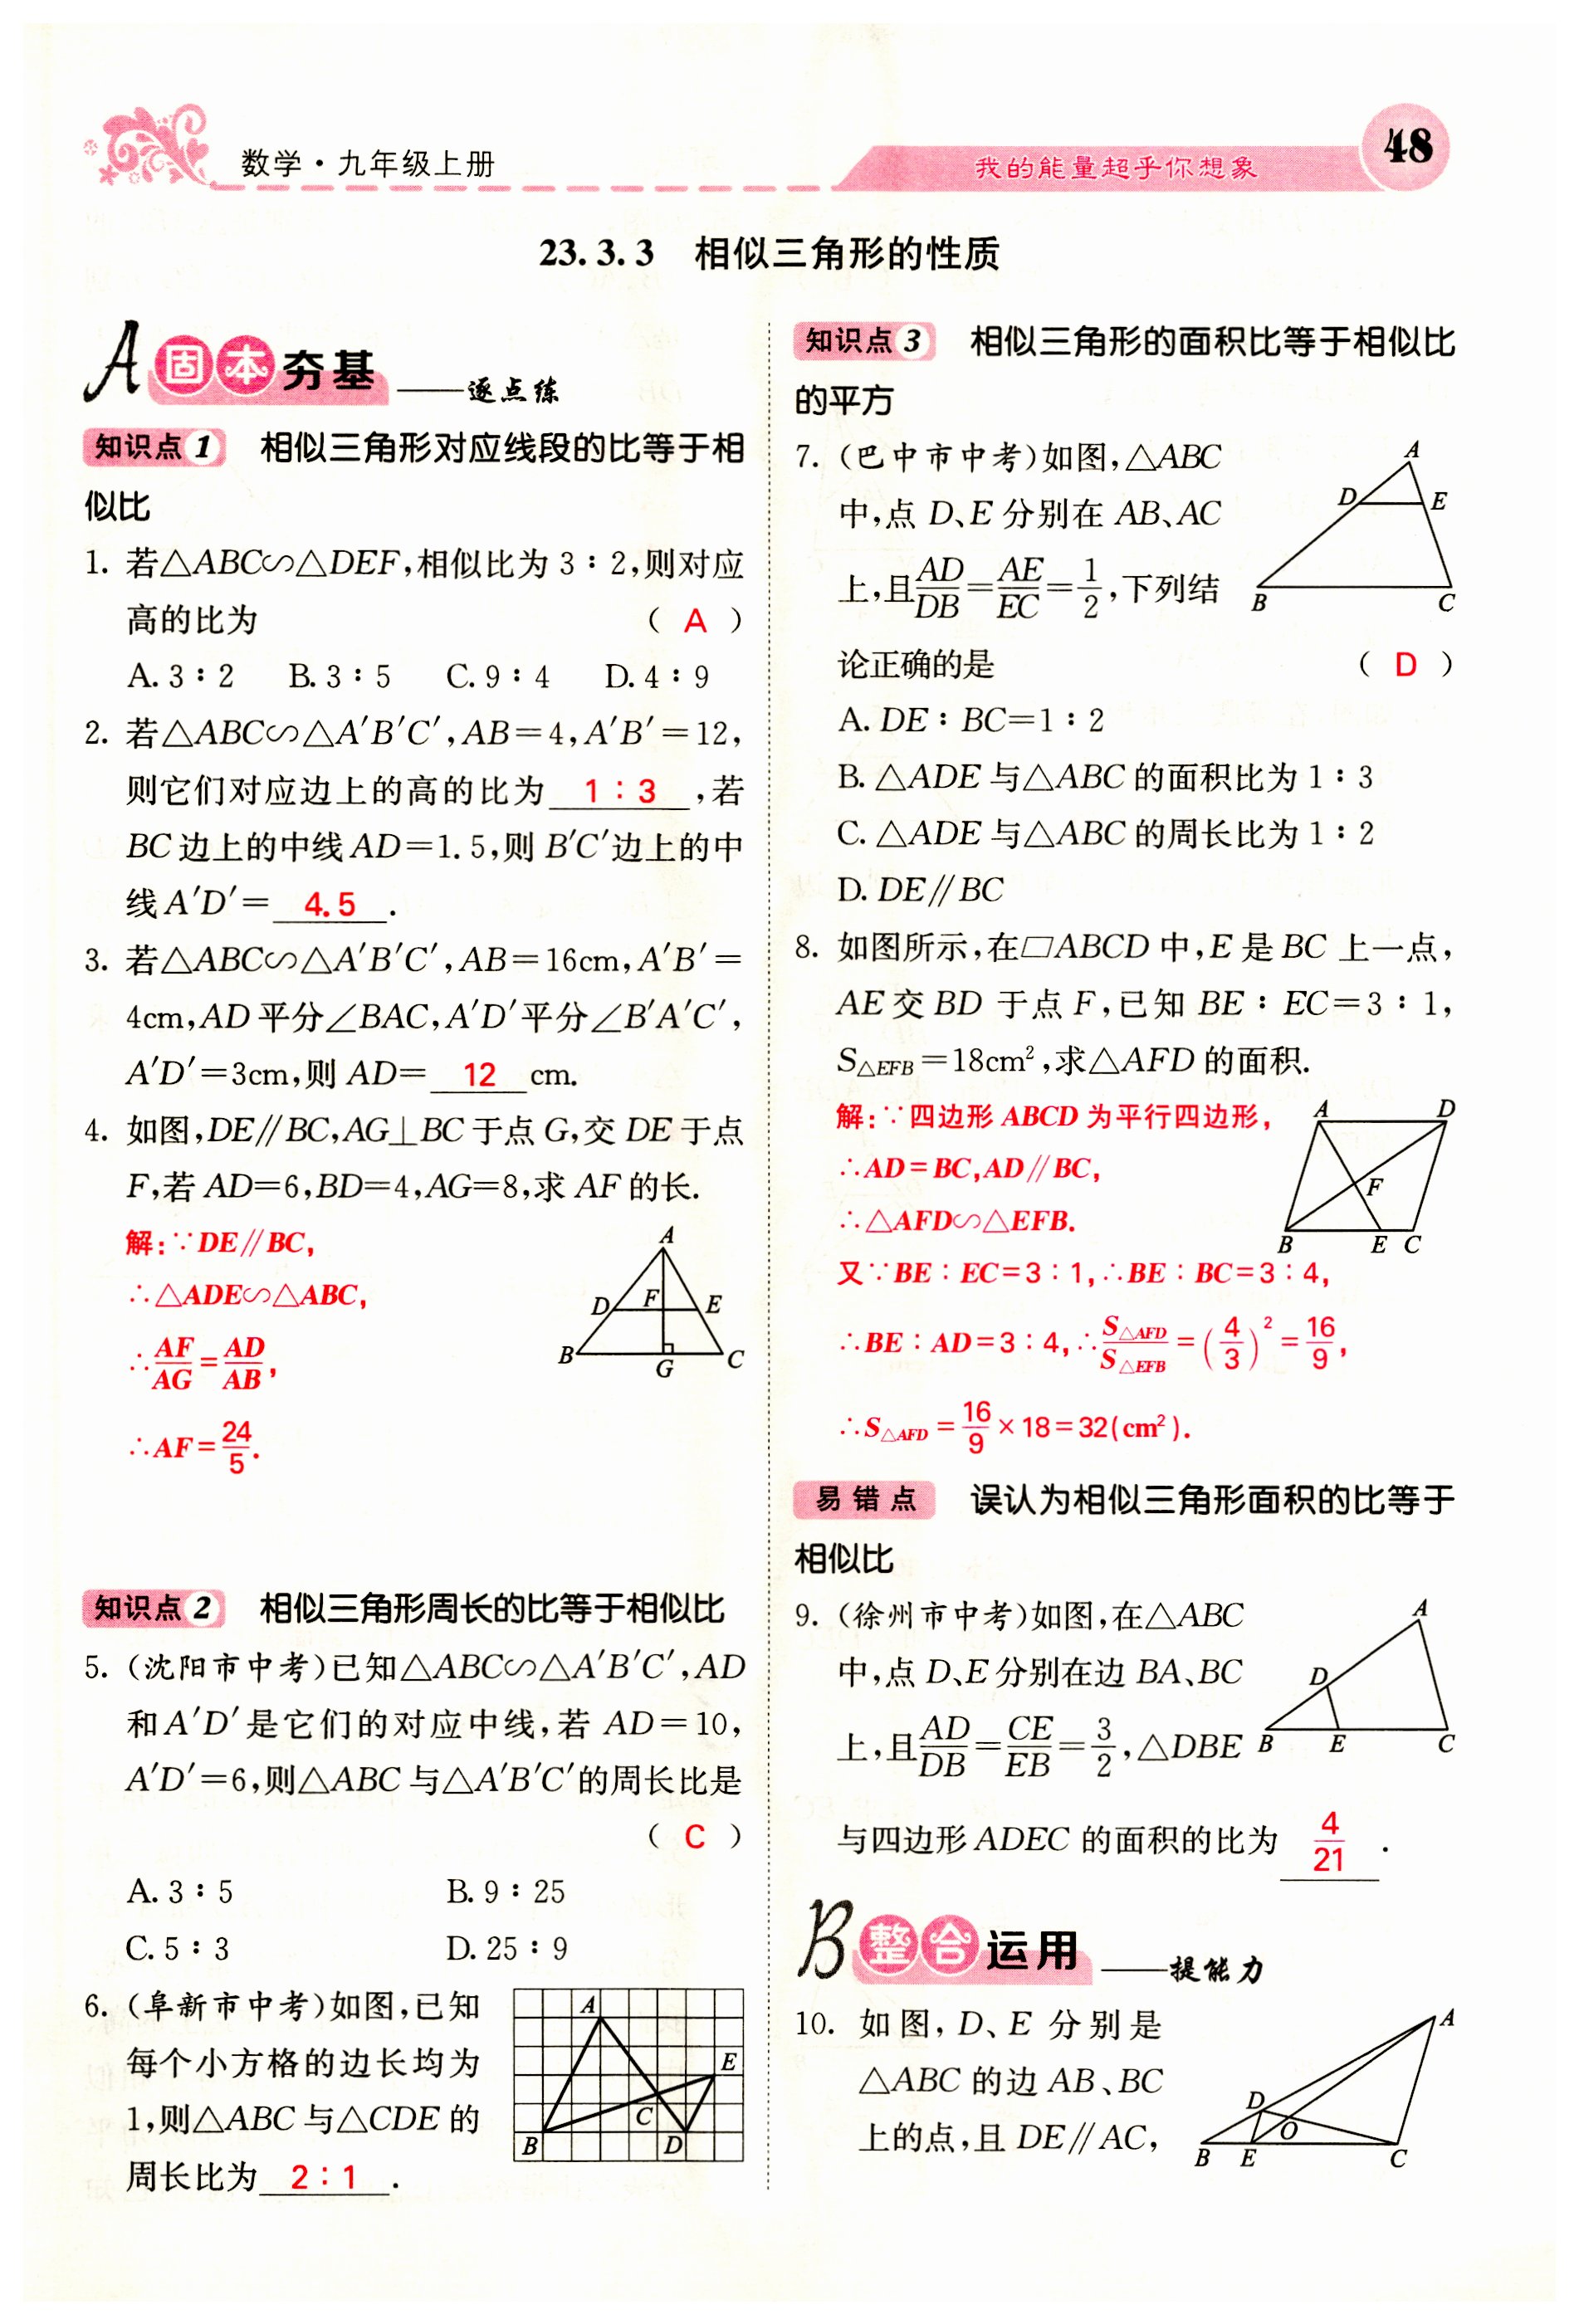 数学·九年级上册
我的能量超乎你想象
48
23.3.3 相似三角形的性质
A 固本夯基 ——逐点练
知识点1 相似三角形对应线段的比等于相
似比
1. 若△ABC∽△DEF,相似比为 3∶2,则对应
高的比为 ( A )
A. 3∶2 B. 3∶5 C. 9∶4 D. 4∶9
2. 若△ABC∽△A′B′C′,AB=4,A′B′=12,
则它们对应边上的高的比为 1∶3 ,若
BC 边上的中线 AD=1.5,则 B′C′边上的中
线 A′D′= 4.5 .
3. 若△ABC∽△A′B′C′,AB=16cm,A′B′=
4cm,AD 平分∠BAC,A′D′平分∠B′A′C′,
A′D′=3cm,则 AD= 12 cm.
4. 如图,DE∥BC,AG⊥BC 于点 G,交 DE 于点
F,若 AD=6,BD=4,AG=8,求 AF 的长.
解:∵DE∥BC,
∴△ADE∽△ABC,
∴AF/AG=AD/AB,
∴AF=24/5.
A
D F E
B G C
知识点2 相似三角形周长的比等于相似比
5. (沈阳市中考)已知△ABC∽△A′B′C′,AD
和 A′D′是它们的对应中线,若 AD=10,
A′D′=6,则△ABC 与△A′B′C′的周长比是
( C )
A. 3∶5 B. 9∶25
C. 5∶3 D. 25∶9
6. (阜新市中考)如图,已知
每个小方格的边长均为
1,则△ABC 与△CDE 的
周长比为 2∶1 .
A
E
C
B D
知识点3 相似三角形的面积比等于相似比
的平方
7. (巴中市中考)如图,△ABC
中,点 D、E 分别在 AB、AC
上,且AD/DB=AE/EC=1/2,下列结
论正确的是 ( D )
A
D E
B C
A. DE∶BC=1∶2
B. △ADE 与△ABC 的面积比为 1∶3
C. △ADE 与△ABC 的周长比为 1∶2
D. DE∥BC
8. 如图所示,在▱ABCD 中,E 是 BC 上一点,
AE 交 BD 于点 F,已知 BE∶EC=3∶1,
S△EFB=18cm²,求△AFD 的面积.
解:∵四边形 ABCD 为平行四边形,
∴AD=BC,AD∥BC,
∴△AFD∽△EFB.
又∵BE∶EC=3∶1,∴BE∶BC=3∶4,
∴BE∶AD=3∶4,∴S△AFD/S△EFB=(4/3)²=16/9,
∴S△AFD=16/9×18=32(cm²).
A D
F
B E C
易错点 误认为相似三角形面积的比等于
相似比
9. (徐州市中考)如图,在△ABC
中,点 D、E 分别在边 BA、BC
上,且AD/DB=CE/EB=3/2,△DBE
与四边形 ADEC 的面积的比为 4/21 .
A
D
B E C
B 整合运用 ——提能力
10. 如图,D、E 分别是
△ABC 的边 AB、BC
上的点,且 DE∥AC,
A
D
O
B E C